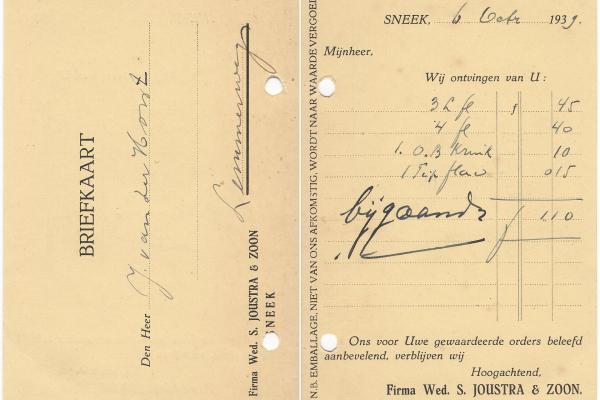 BRIEFKAART
Den Heer J. van der Horst
Lemmerweg
Firma Wed. S. JOUSTRA & ZOON
SNEEK
N.B. EMBALLAGE, NIET VAN ONS AFKOMSTIG, WORDT NAAR WAARDE VERGOED
SNEEK, 6 Octr 1939.
Mijnheer,
Wij ontvingen van U:
3 L fl f 45
4 fl 40
1. O.B. Kruik 10
1 015
bijgaande f 1.10
Ons voor Uwe gewaardeerde orders beleefd
aanbevelend, verblijven wij
Hoogachtend,
Firma Wed. S. JOUSTRA & ZOON.